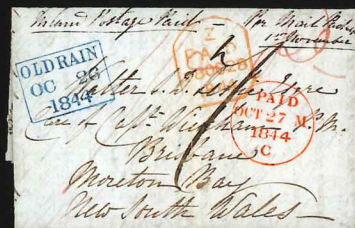 Inland Postage Paid — Per Mail Packet
1st November
OLDRAIN
OC 26
1844
Z
PAID
PAID
OCT 27 M
1844
C
Walter S. D. Leslie
Care of Capt. Wickham R.N.
Brisbane
Moreton Bay
New South Wales —